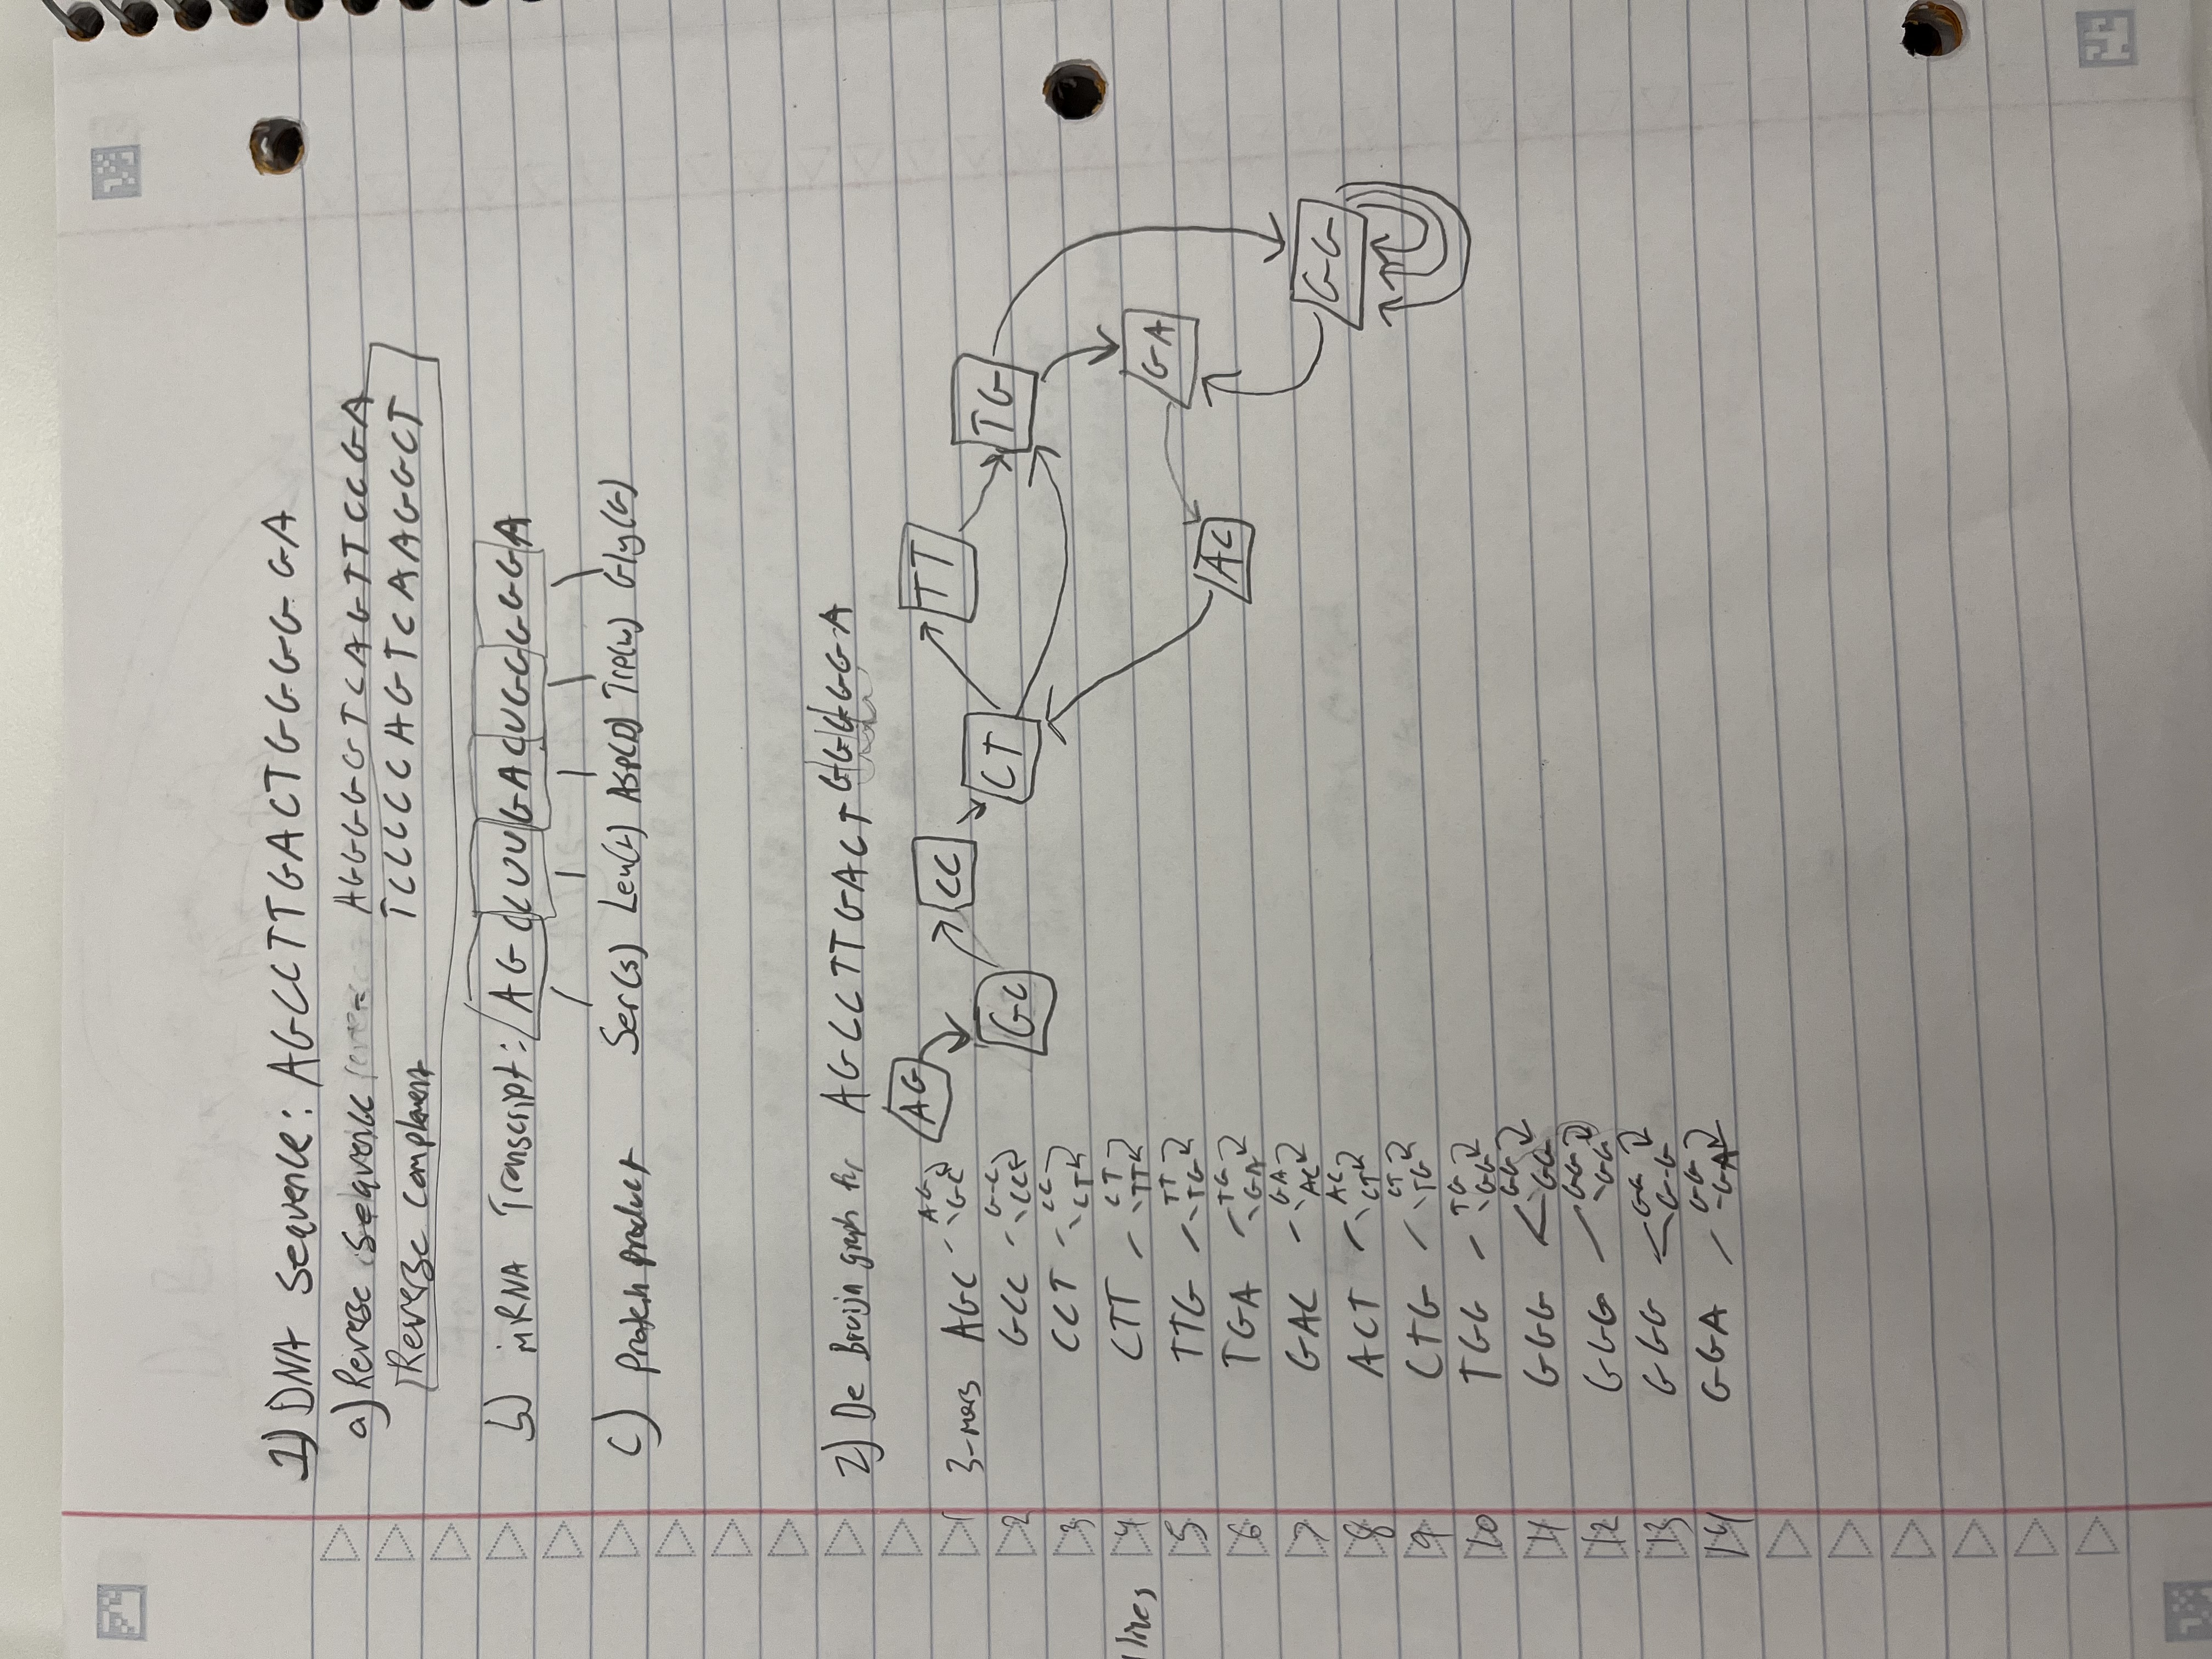 1) DNA Sequence: AGCCTTGACTGGGG GA
a) Reverse Sequence AGGGGGTCAGTTCCGA
Reverse complement TCCCCCAGTCAAGGCT
b) mRNA Transcript: AGC CUU GAC UGG GGG A
c) Protein product Ser(S) Leu(L) Asp(D) Trp(W) Gly(G)
2) De Bruijn graph for AGCCTTGACTGGGGGA
AG
CC
TT
CT
TG
GC
GA
AC
GG
1 3-mers AGC - AG GC
2 GCC - GC CC
3 CCT - CC CT
lives 4 CTT - CT TT
5 TTG - TT TG
6 TGA - TG GA
7 GAC - GA AC
8 ACT - AC CT
9 CTG - CT TG
10 TGG - TG GG
11 GGG < GG GG
12 GGG - GG GG
13 GGG < GG GG
14 GGA - GG GA